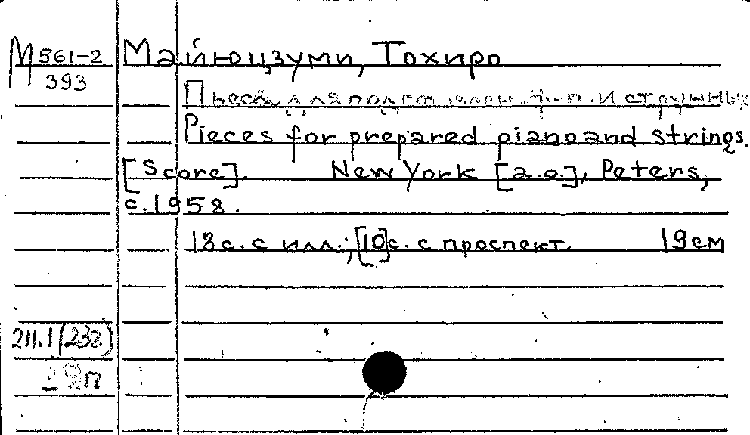 М 561-2
393
Майюцзуми, Тохиро
Пьеса для подгот. ф-п. и струнных
Pieces for prepared piano and strings.
[Score]. New York [a.o.], Peters,
c.1958.
18 с. с илл.; [10] с. с проспект. 19 см
211.1 (232)